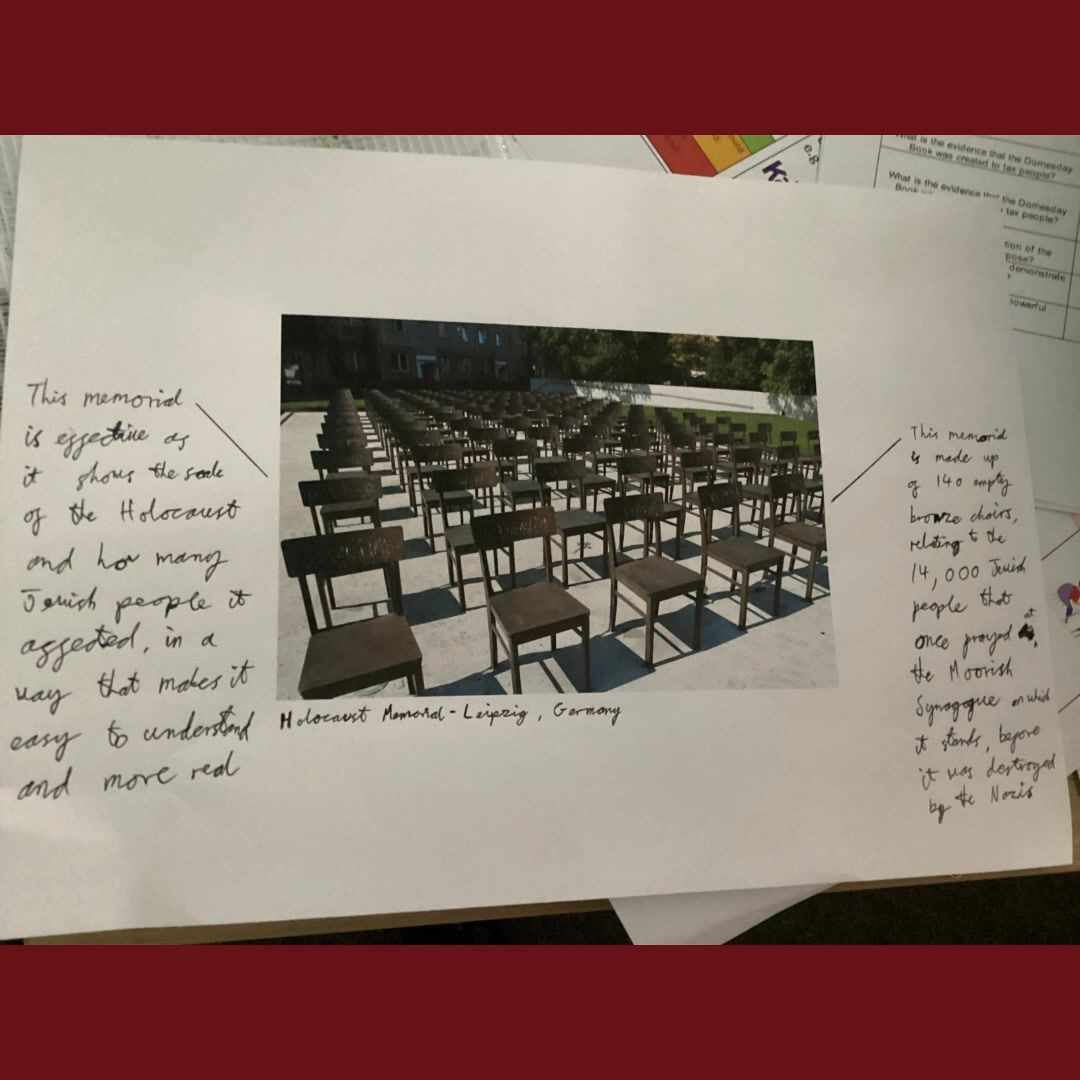 This memorial
is effective as
it shows the scale
of the Holocaust
and how many
Jewish people it
affected, in a
way that makes it
easy to understand
and more real
Holocaust Memorial - Leipzig, Germany
This memorial
is made up
of 140 empty
bronze chairs,
relating to the
14,000 Jewish
people that
once prayed at
the Moorish
Synagogue on which
it stands, before
it was destroyed
by the Nazis
What is the evidence that the Domesday
Book was created to tax people?
What is the evidence that the Domesday
Book
tax people?
tion of the
pose?
demonstrate
?
powerful